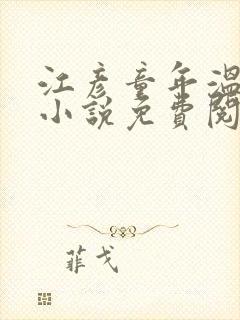 江彦童年温
小说免費閱
菲戈